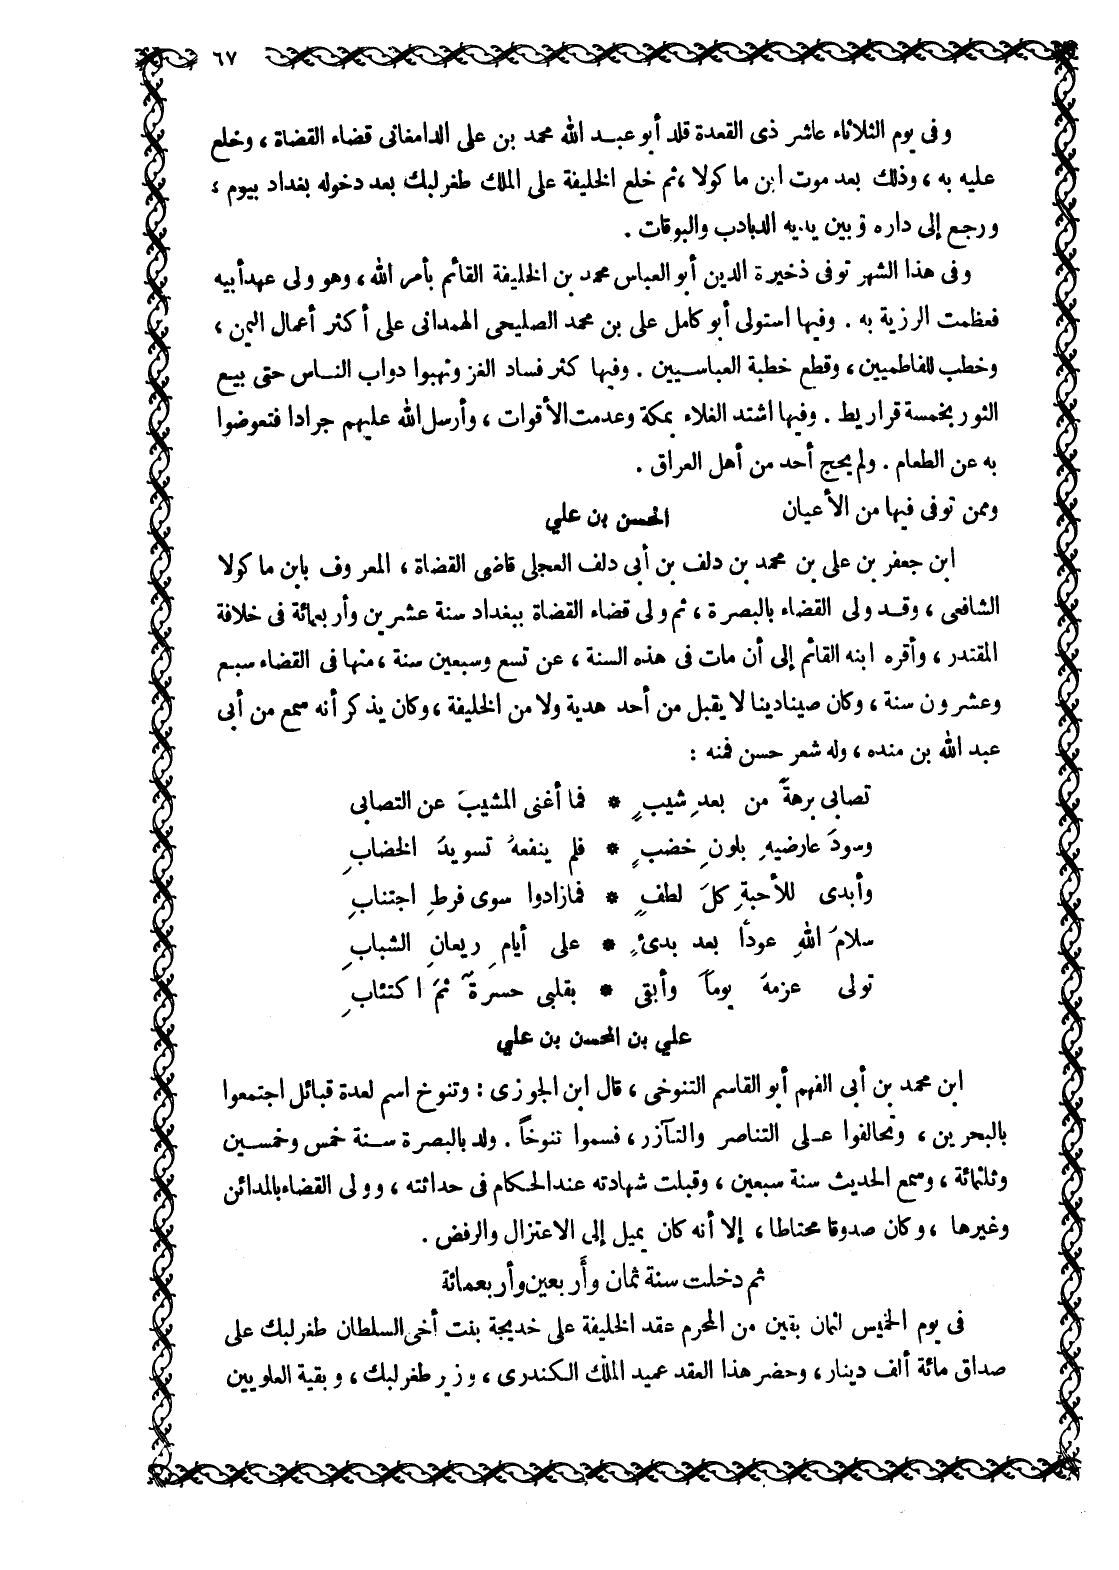 ٦٧
وفى يوم الثلاثاء عاشر ذى القعدة قلد أبو عبد الله محمد بن على الدامغانى قضاء القضاة ، وخلع
عليه به ، وذلك بعد موت ابن ما كولا ، ثم خلع الخليفة على الملك طغرلبك بعد دخوله بغداد بيوم ،
ورجع إلى داره وبين يديه الدبادب والبوقات .
وفى هذا الشهر توفى ذخيرة الدين أبو العباس محمد بن الخليفة القائم بأمر الله ، وهو ولى عهد أبيه
فعظمت الرزية به . وفيها استولى أبو كامل على بن محمد الصليحى الهمدانى على أكثر أعمال اليمن ،
وخطب للفاطميين ، وقطع خطبة العباسيين . وفيها كثر فساد الغز ونهبوا دواب الناس حتى بيع
الثور بخمسة قراريط . وفيها اشتد الغلاء بمكة وعدمت الأقوات ، وأرسل الله عليهم جرادا فتعوضوا
به عن الطعام . ولم يحج أحد من أهل العراق .
وممن توفى فيها من الأعيان الحسن بن علي
ابن جعفر بن على بن محمد بن دلف بن أبى دلف العجلى قاضى القضاة ، المعروف بابن ما كولا
الشافعى ، وقد ولى القضاء بالبصرة ، ثم ولى قضاء القضاة ببغداد سنة عشرين وأربعمائة فى خلافة
المقتدر ، وأقره ابنه القائم إلى أن مات فى هذه السنة ، عن تسع وسبعين سنة ، منها فى القضاء سبع
وعشرون سنة ، وكان صينا دينا لا يقبل من أحد هدية ولا من الخليفة ، وكان يذكر أنه سمع من أبى
عبد الله بن منده ، وله شعر حسن فمنه :
تصابى برهةً من بعدِ شيبٍ * فما أغنى المشيبَ عن التصابى
وسودَ عارضيهِ بلونِ خضبٍ * فلم ينفعهُ تسويدُ الخضابِ
وأبدى للأحبةِ كلَ لطفٍ * فمازادوا سوى فرطِ اجتنابِ
سلامُ اللهِ عوداً بعد بدئٍ * على أيامِ ريعانِ الشبابِ
تولى عزمهُ يوماً وأبقى * بقلبى حسرةً ثمَ اكتئابِ
علي بن المحسن بن علي
ابن محمد بن أبى الفهم أبو القاسم التنوخى ، قال ابن الجوزى : وتنوخ اسم لعدة قبائل اجتمعوا
بالبحرين ، وتحالفوا على التناصر والتآزر ، فسموا تنوخاً . ولد بالبصرة سنة خمس وخمسين
وثلثمائة ، وسمع الحديث سنة سبعين ، وقبلت شهادته عند الحكام فى حداثته ، وولى القضاء بالمدائن
وغيرها ، وكان صدوقا محتاطا ، إلا أنه كان يميل إلى الاعتزال والرفض .
ثم دخلت سنة ثمان وأربعين وأربعمائة
فى يوم الخميس لثمان بقين من المحرم عقد الخليفة على خديجة بنت أخى السلطان طغرلبك على
صداق مائة ألف دينار ، وحضر هذا العقد عميد الملك الكندرى ، وزير طغرلبك ، وبقية العلويين